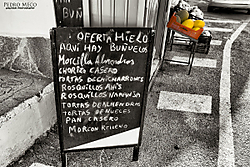 PEDRO MECO
BUÑ
OFERTA HIELO
AQUÍ HAY BUÑUELOS
MORCILLA ALMENDROS
CHORIZO CASERO
TORTAS DE CHICHARRONES
ROSQUILLOS ANIS
ROSQUILLOS NARANJA
TORTAS DE ALMENDRAS
TORTAS DE NUECES
PAN CASERO
MORCON RELLENO